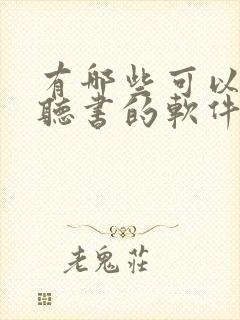 有哪些可以
聽書的軟件
老鬼莊